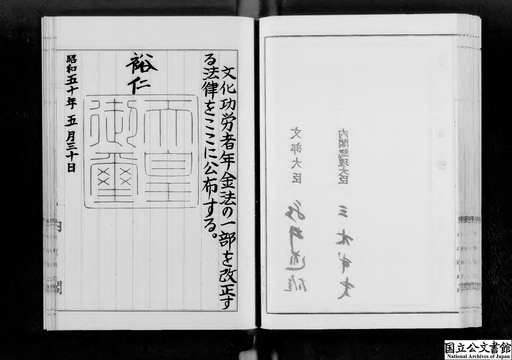 文化功労者年金法の一部を改正す
る法律をここに公布する。
裕仁
天皇
御璽
昭和五十年五月三十日
内閣
内閣総理大臣 三木武夫
文部大臣 永井道雄
国立公文書館
National Archives of Japan